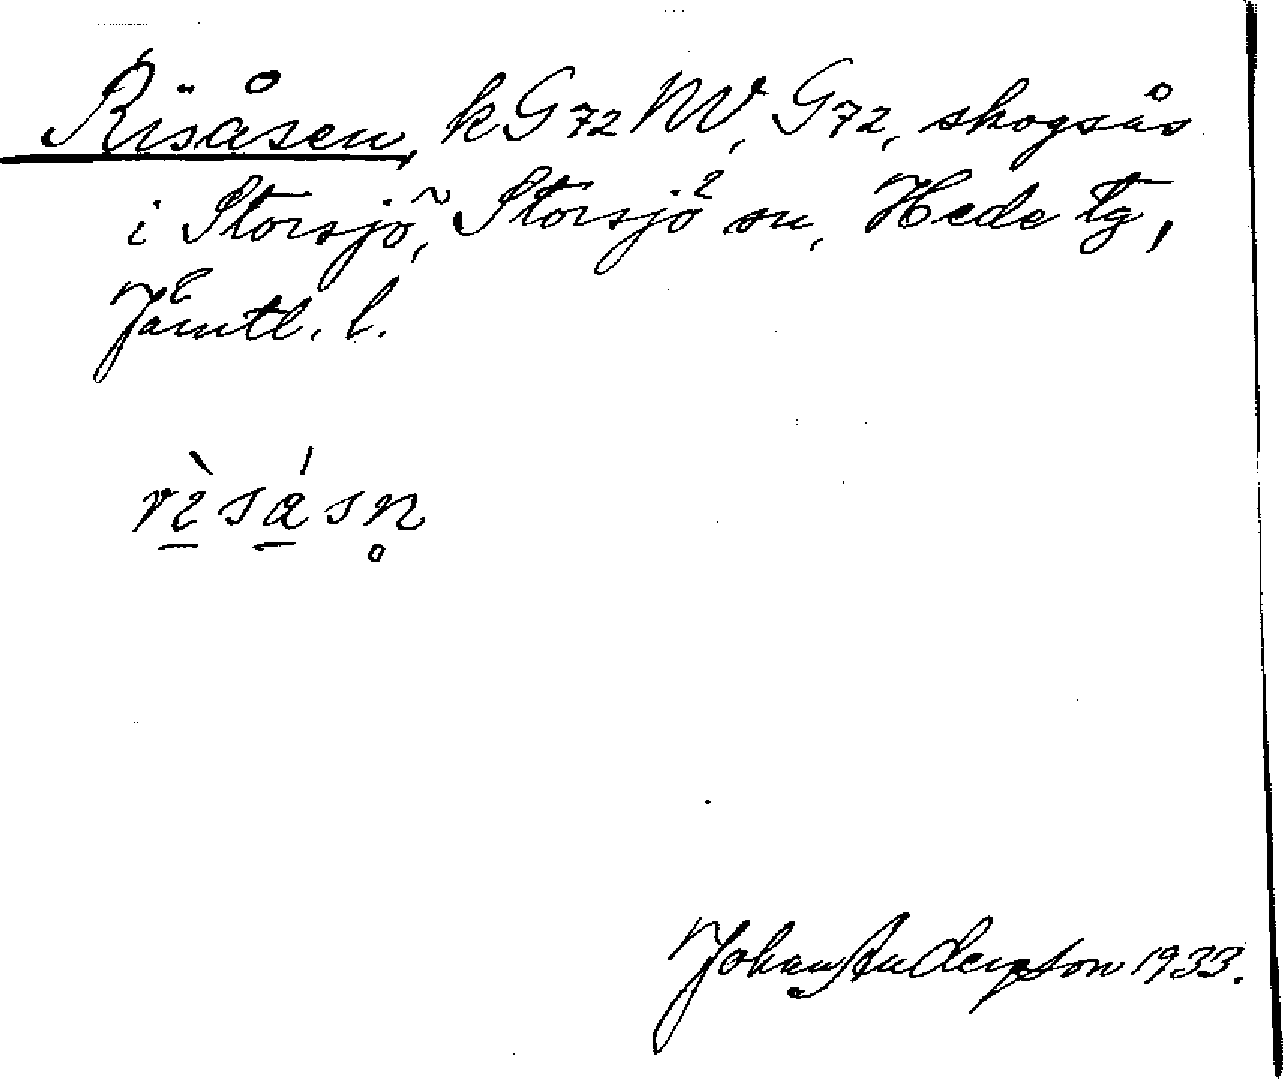 Risåsen, k G72 NV, G72, skogsås
i Storsjö, Storsjö sn, Hede tg,
Jämtl. l.
rìsásn̥
Johan Anderson 1933.